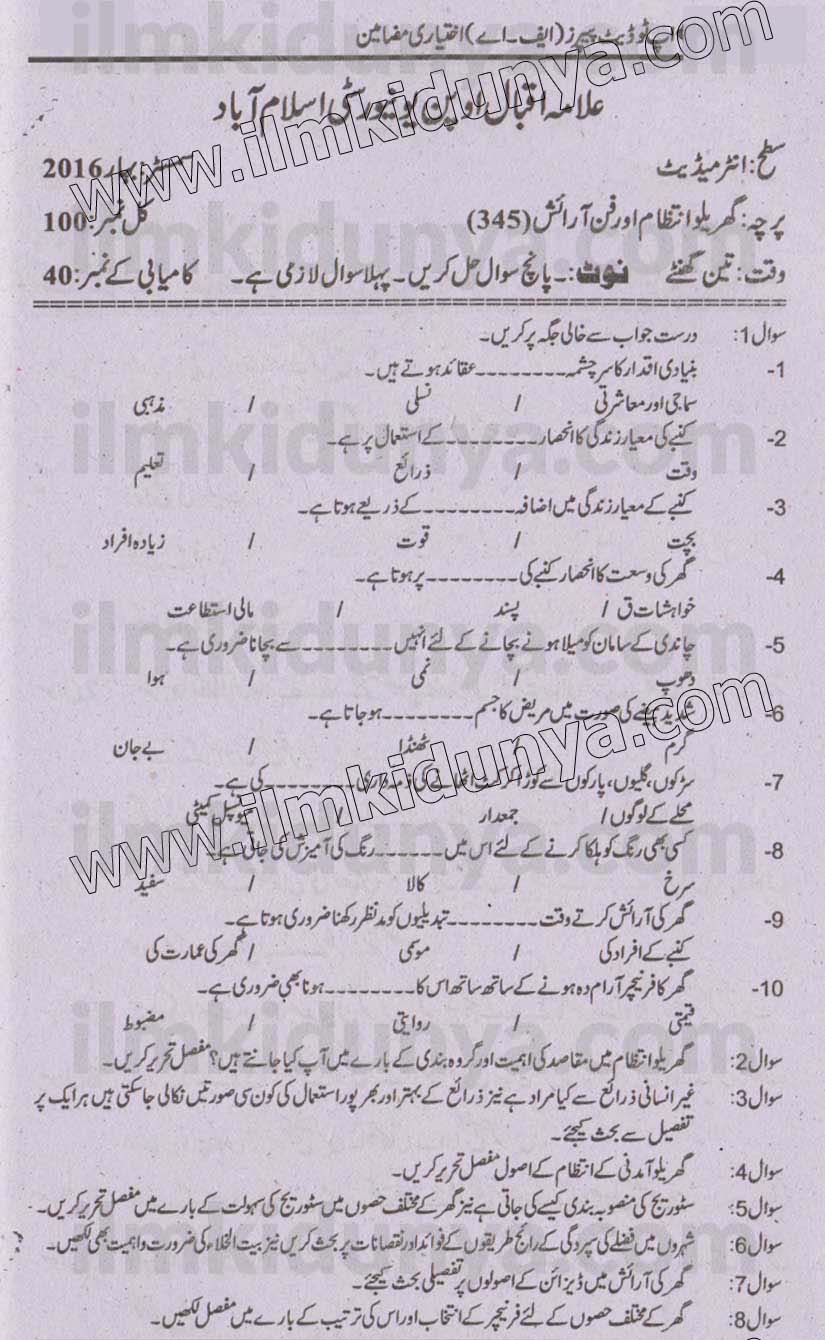 اپ ٹو ڈیٹ پیپرز (ایف۔اے) اختیاری مضامین
علامہ اقبال اوپن یونیورسٹی اسلام آباد
سطح: انٹرمیڈیٹ سمسٹر: بہار 2016
پرچہ: گھریلو انتظام اور فن آرائش (345) کل نمبر: 100
وقت: تین گھنٹے نوٹ:۔ پانچ سوال حل کریں۔ پہلا سوال لازمی ہے۔ کامیابی کے نمبر: 40
سوال 1: درست جواب سے خالی جگہ پر کریں۔
1- بنیادی اقدار کا سرچشمہ ـــــــــ عقائد ہوتے ہیں۔
سماجی اور معاشرتی / نسلی / مذہبی
2- کنبے کی معیار زندگی کا انحصار ـــــــــ کے استعمال پر ہے۔
وقت / ذرائع / تعلیم
3- کنبے کے معیار زندگی میں اضافہ ـــــــــ کے ذریعے ہوتا ہے۔
بچت / قوت / زیادہ افراد
4- گھر کی وسعت کا انحصار کنبے کی ـــــــــ پر ہوتا ہے۔
خواہشات ق / پسند / مالی استطاعت
5- چاندی کے سامان کو میلا ہونے بچانے کے لئے انہیں ـــــــــ سے بچانا ضروری ہے۔
دھوپ / نمی / ہوا
6- شدید ہیضے کی صورت میں مریض کا جسم ـــــــــ ہو جاتا ہے۔
گرم / ٹھنڈا / بے جان
7- سڑکوں، گلیوں، پارکوں سے کوڑا کرکٹ اٹھانے کی ذمہ داری ـــــــــ کی ہے۔
محلے کے لوگوں / جمعدار / میونسپل کمیٹی
8- کسی بھی رنگ کو ہلکا کرنے کے لئے اس میں ـــــــــ رنگ کی آمیزش کی جاتی ہے۔
سرخ / کالا / سفید
9- گھر کی آرائش کرتے وقت ـــــــــ تبدیلیوں کو مدنظر رکھنا ضروری ہوتا ہے۔
کنبے کے افراد کی / موسمی / گھر کی عمارت کی
10- گھر کا فرنیچر آرام دہ ہونے کے ساتھ ساتھ اس کا ـــــــــ ہونا بھی ضروری ہے۔
قیمتی / روایتی / مضبوط
سوال 2: گھریلو انتظام میں مقاصد کی اہمیت اور گروہ بندی کے بارے میں آپ کیا جانتے ہیں؟ مفصل تحریر کریں۔
سوال 3: غیر انسانی ذرائع سے کیا مراد ہے نیز ذرائع کے بہتر اور بھرپور استعمال کی کون سی صورتیں نکالی جا سکتی ہیں ہر ایک پر
تفصیل سے بحث کیجئے۔
سوال 4: گھریلو آمدنی کے انتظام کے اصول مفصل تحریر کریں۔
سوال 5: سٹوریج کی منصوبہ بندی کیسے کی جاتی ہے نیز گھر کے مختلف حصوں میں سٹوریج کی سہولت کے بارے میں مفصل تحریر کریں۔
سوال 6: شہروں میں فضلے کی سپردگی کے رائج طریقوں کے فوائد اور نقصانات پر بحث کریں نیز بیت الخلاء کی ضرورت و اہمیت بھی لکھیں۔
سوال 7: گھر کی آرائش میں ڈیزائن کے اصولوں پر تفصیلی بحث کیجئے۔
سوال 8: گھر کے مختلف حصوں کے لئے فرنیچر کے انتخاب اور اس کی ترتیب کے بارے میں مفصل لکھیں۔
www.ilmkidunya.com
www.ilmkidunya.com
ilmkidunya.com
ilmkidunya.com
ilmkidunya.com
ilmkidunya.com
ilmkidunya.com
ilmkidunya.com
ilmkidunya.com